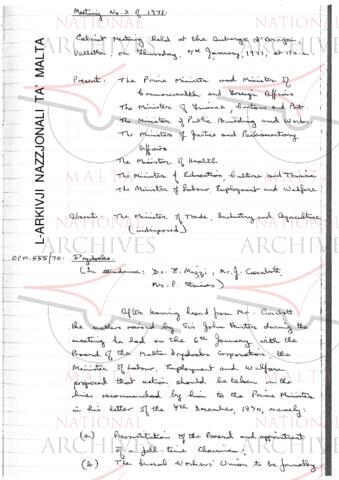 Meeting No. 2 of 1971.
Cabinet Meeting held at the Auberge d'Aragon,
Valletta, on Thursday, 7th January, 1971, at 10 a.m.
Present: The Prime Minister and Minister of
Commonwealth and Foreign Affairs
The Minister of Finance, Customs and Port
The Minister of Public Building and Works
The Minister of Justice and Parliamentary
Affairs
The Minister of Health
The Minister of Education, Culture and Tourism
The Minister of Labour, Employment and Welfare
Absent: The Minister of Trade, Industry and Agriculture
(indisposed)
OPM. 555/70. Drydocks.
(In attendance: Dr. E. Mizzi, Mr. J.
Mr. P.
After having heard from Mr.
the matters raised by Sir John Hunter during the
meeting he had on the 6th January with the
Board of the Malta Drydocks Corporation, the
Minister of Labour, Employment and Welfare
proposed that action should be taken on the
lines recommended by him to the Prime Minister
in his letter of the 4th December, 1970, namely:
(a) Reconstitution of the Board and appointment
of full-time Chairman;
(b) The General Workers' Union to be formally
L-ARKIVJI NAZZJONALI TA' MALTA
NATIONAL
ARCHIVES
MALTA